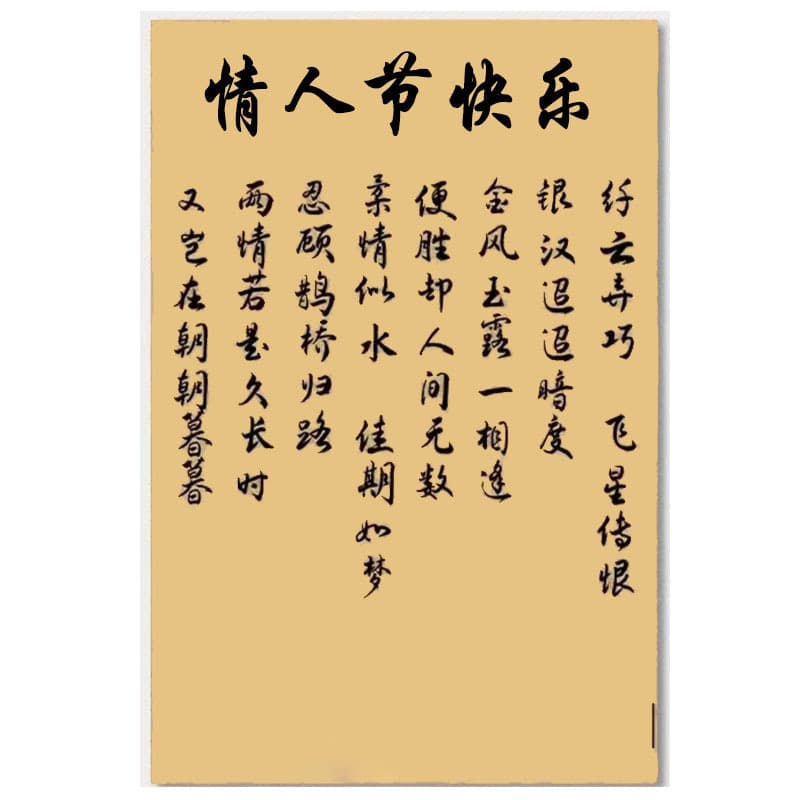 情人节快乐
纤云弄巧 飞星传恨
银汉迢迢暗度
金风玉露一相逢
便胜却人间无数
柔情似水 佳期如梦
忍顾鹊桥归路
两情若是久长时
又岂在朝朝暮暮